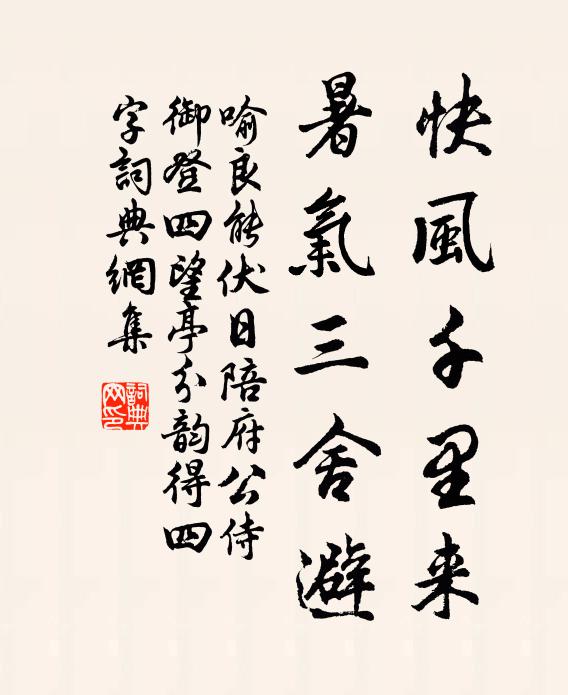 快風千里来
暑氣三舍避
喻良能伏日陪府公侍
御登四望亭分韵得四
字詞典網集
詞典
网印